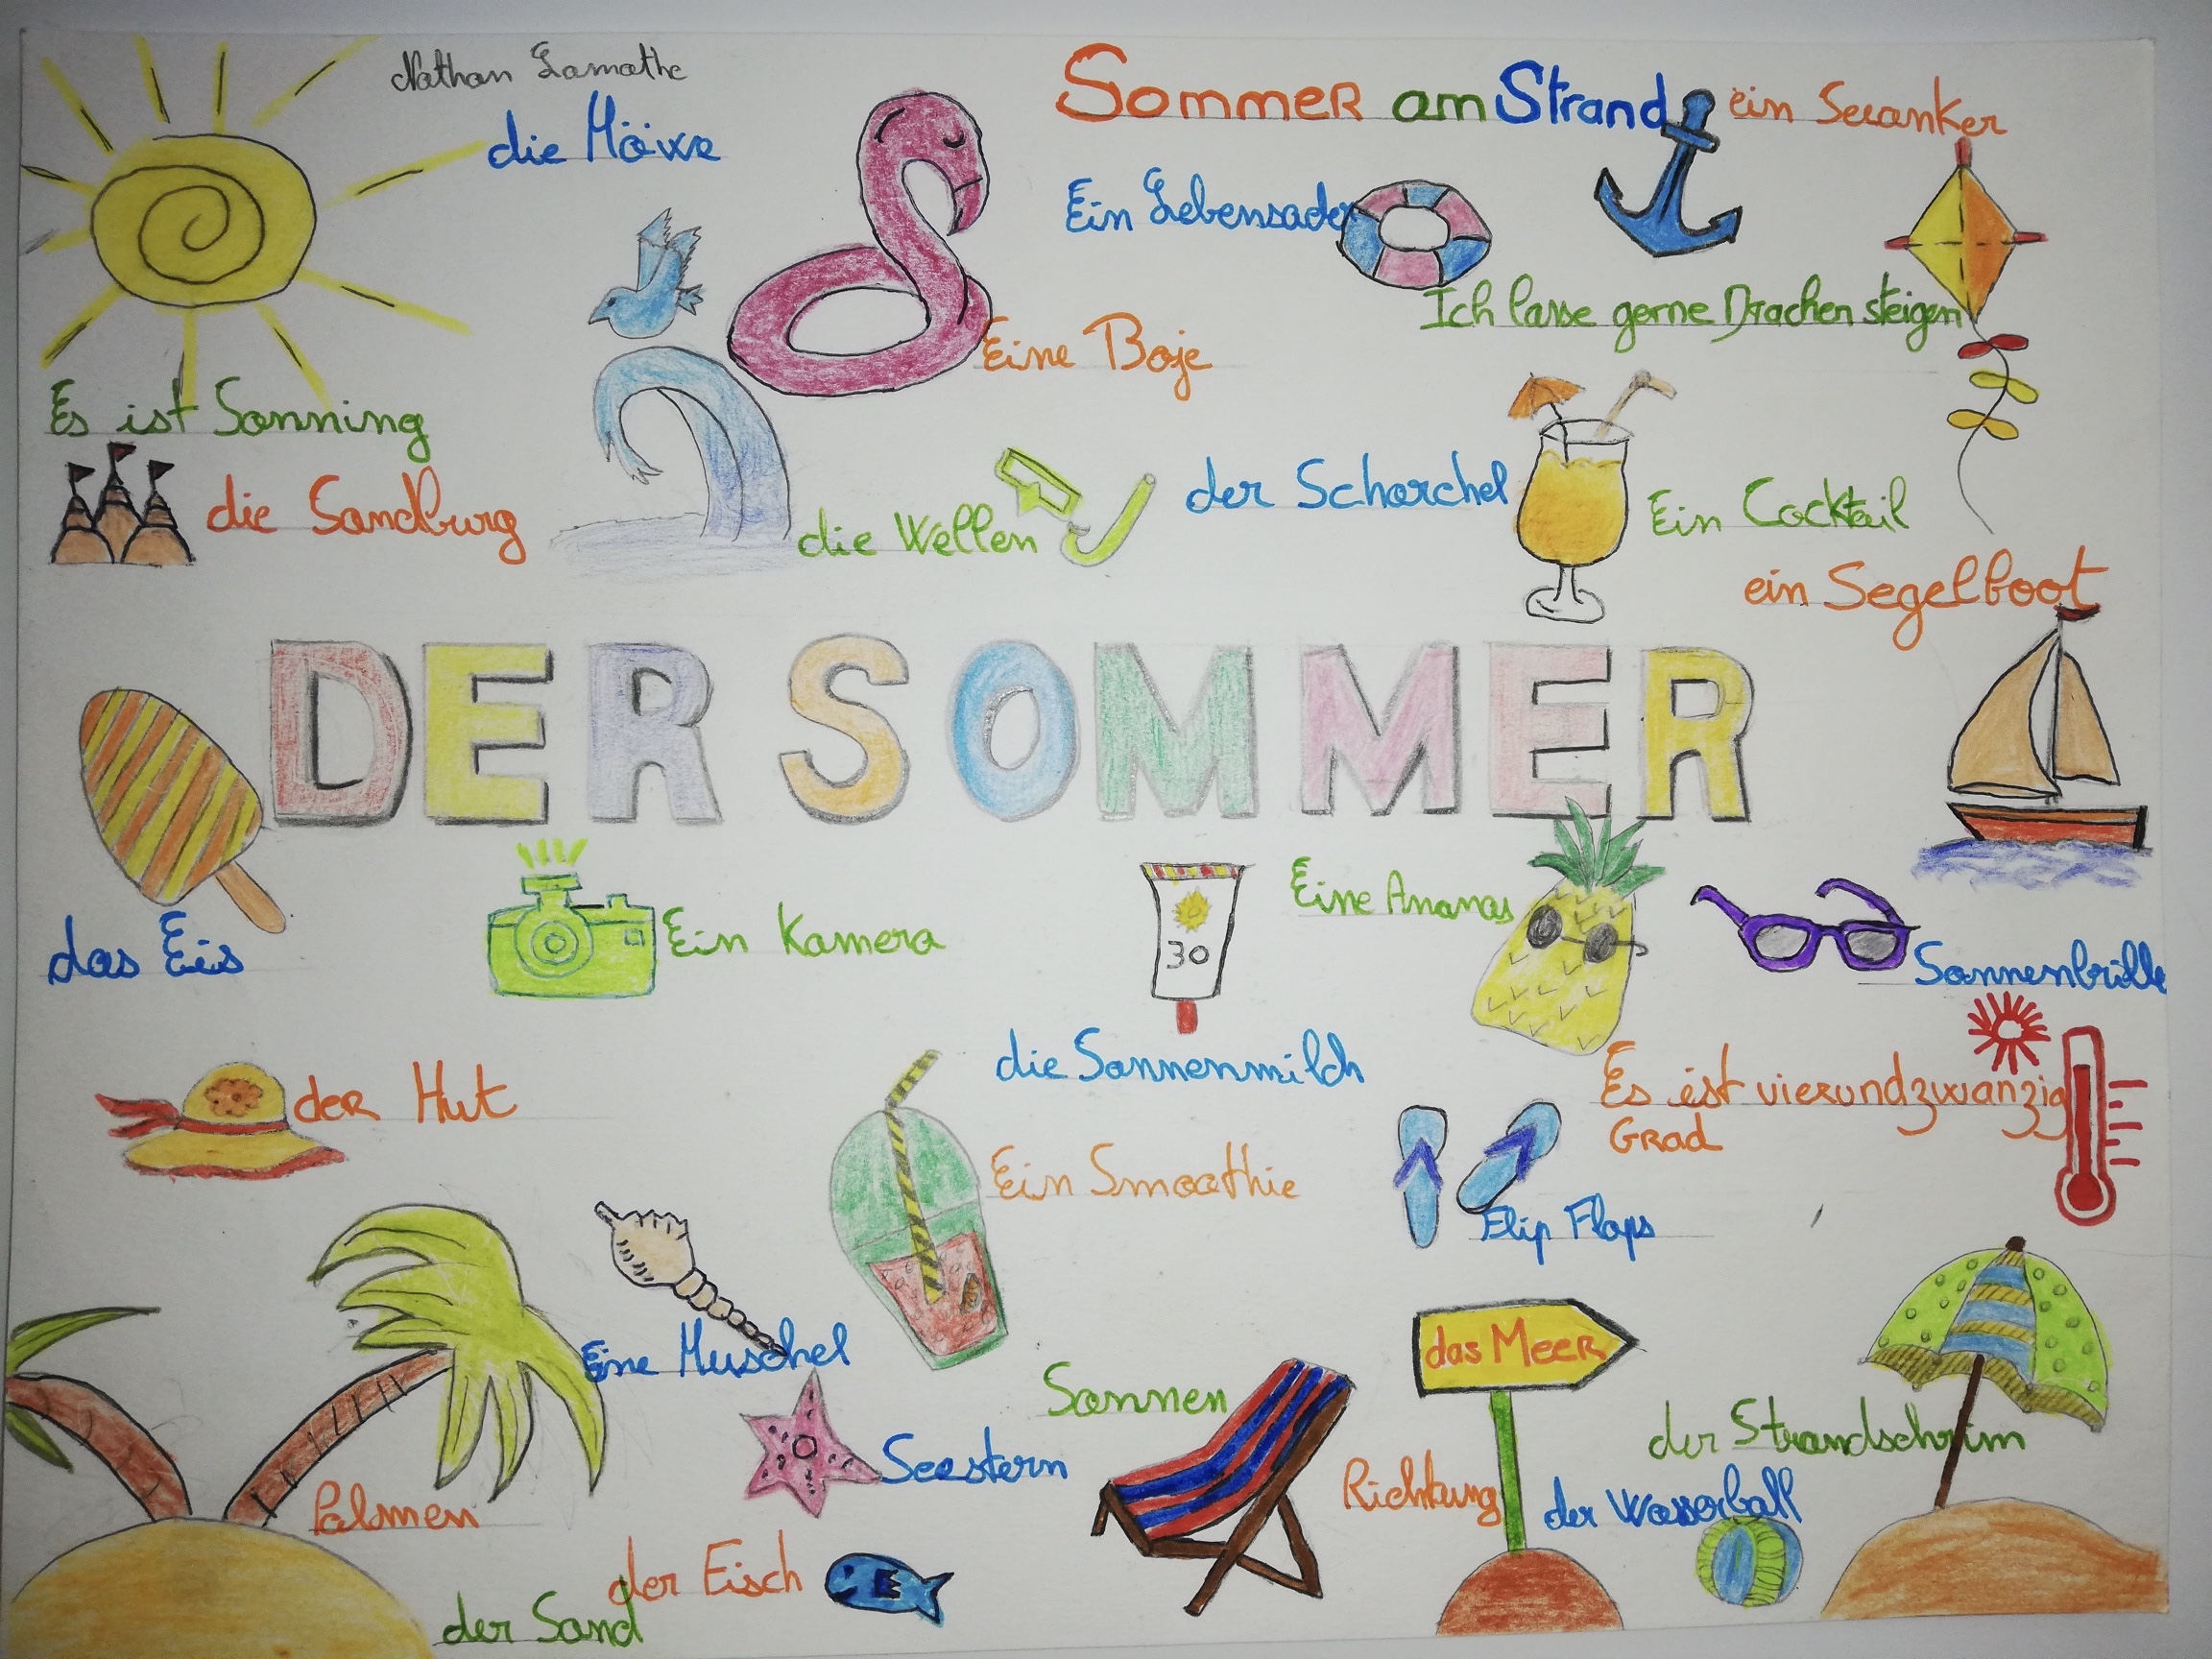 Nathan Lamathe
Sommer am Strand
ein Seeanker
die Möiwe
Ein Lebensader
Ich lasse gerne Drachen steigen
Eine Boje
Es ist Sonning
die Sandburg
die Wellen
der Schorchel
Ein Cocktail
ein Segelboot
DER SOMMER
das Eis
Ein Kamera
30
Eine Ananas
Sonnenbrille
die Sonnenmilch
der Hut
Es ist vierundzwanzig
Grad
Ein Smoothie
Flip Flops
Eine Muschel
das Meer
Sonnen
Seestern
der Strandschrim
Richtung
der Wasserball
Palmen
der Fisch
der Sand